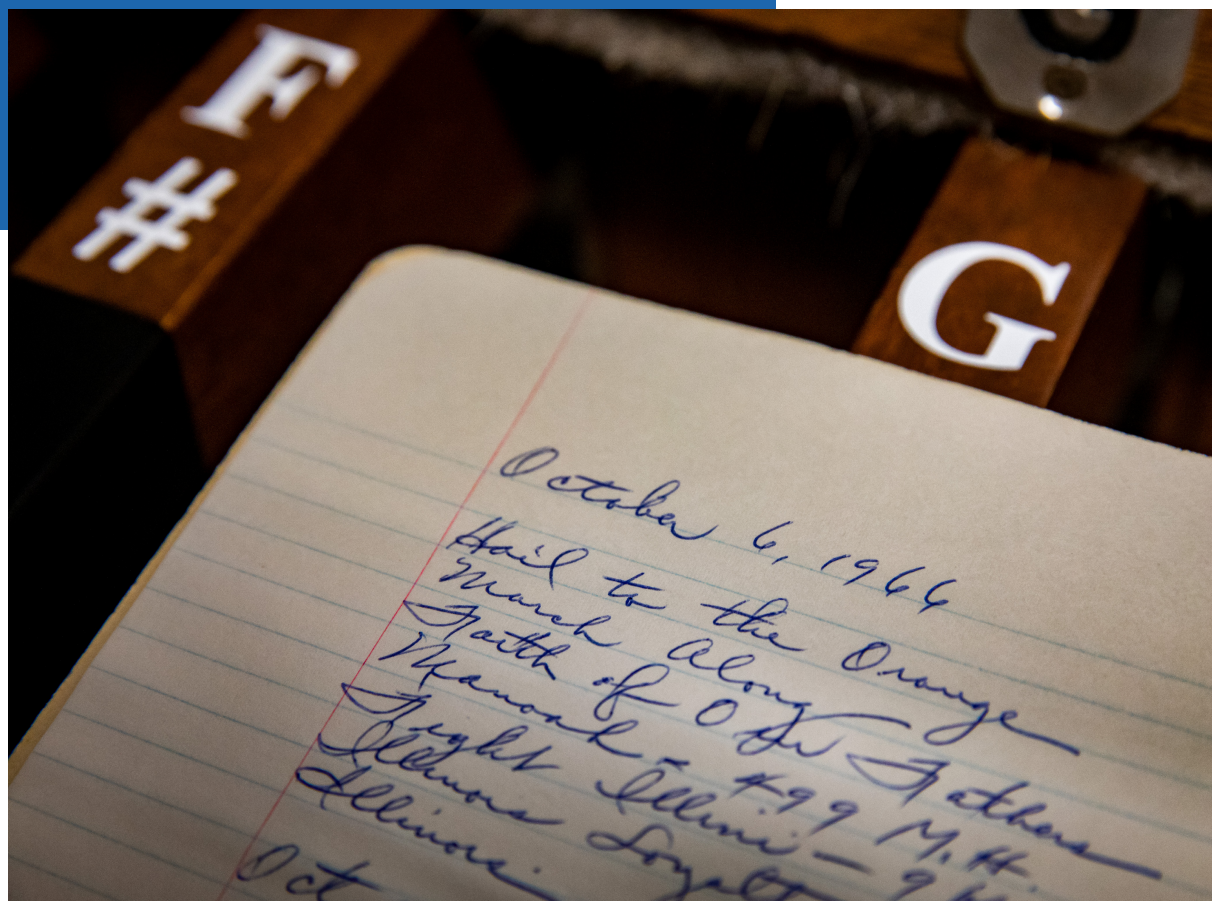 F
#
G
October 6, 1966
Hail to the Orange
March Along
Faith of Our Fathers
Manoah - #99 M.H.
Fight Illini - 9
Illinois Loyalty
Illinois.
Oct